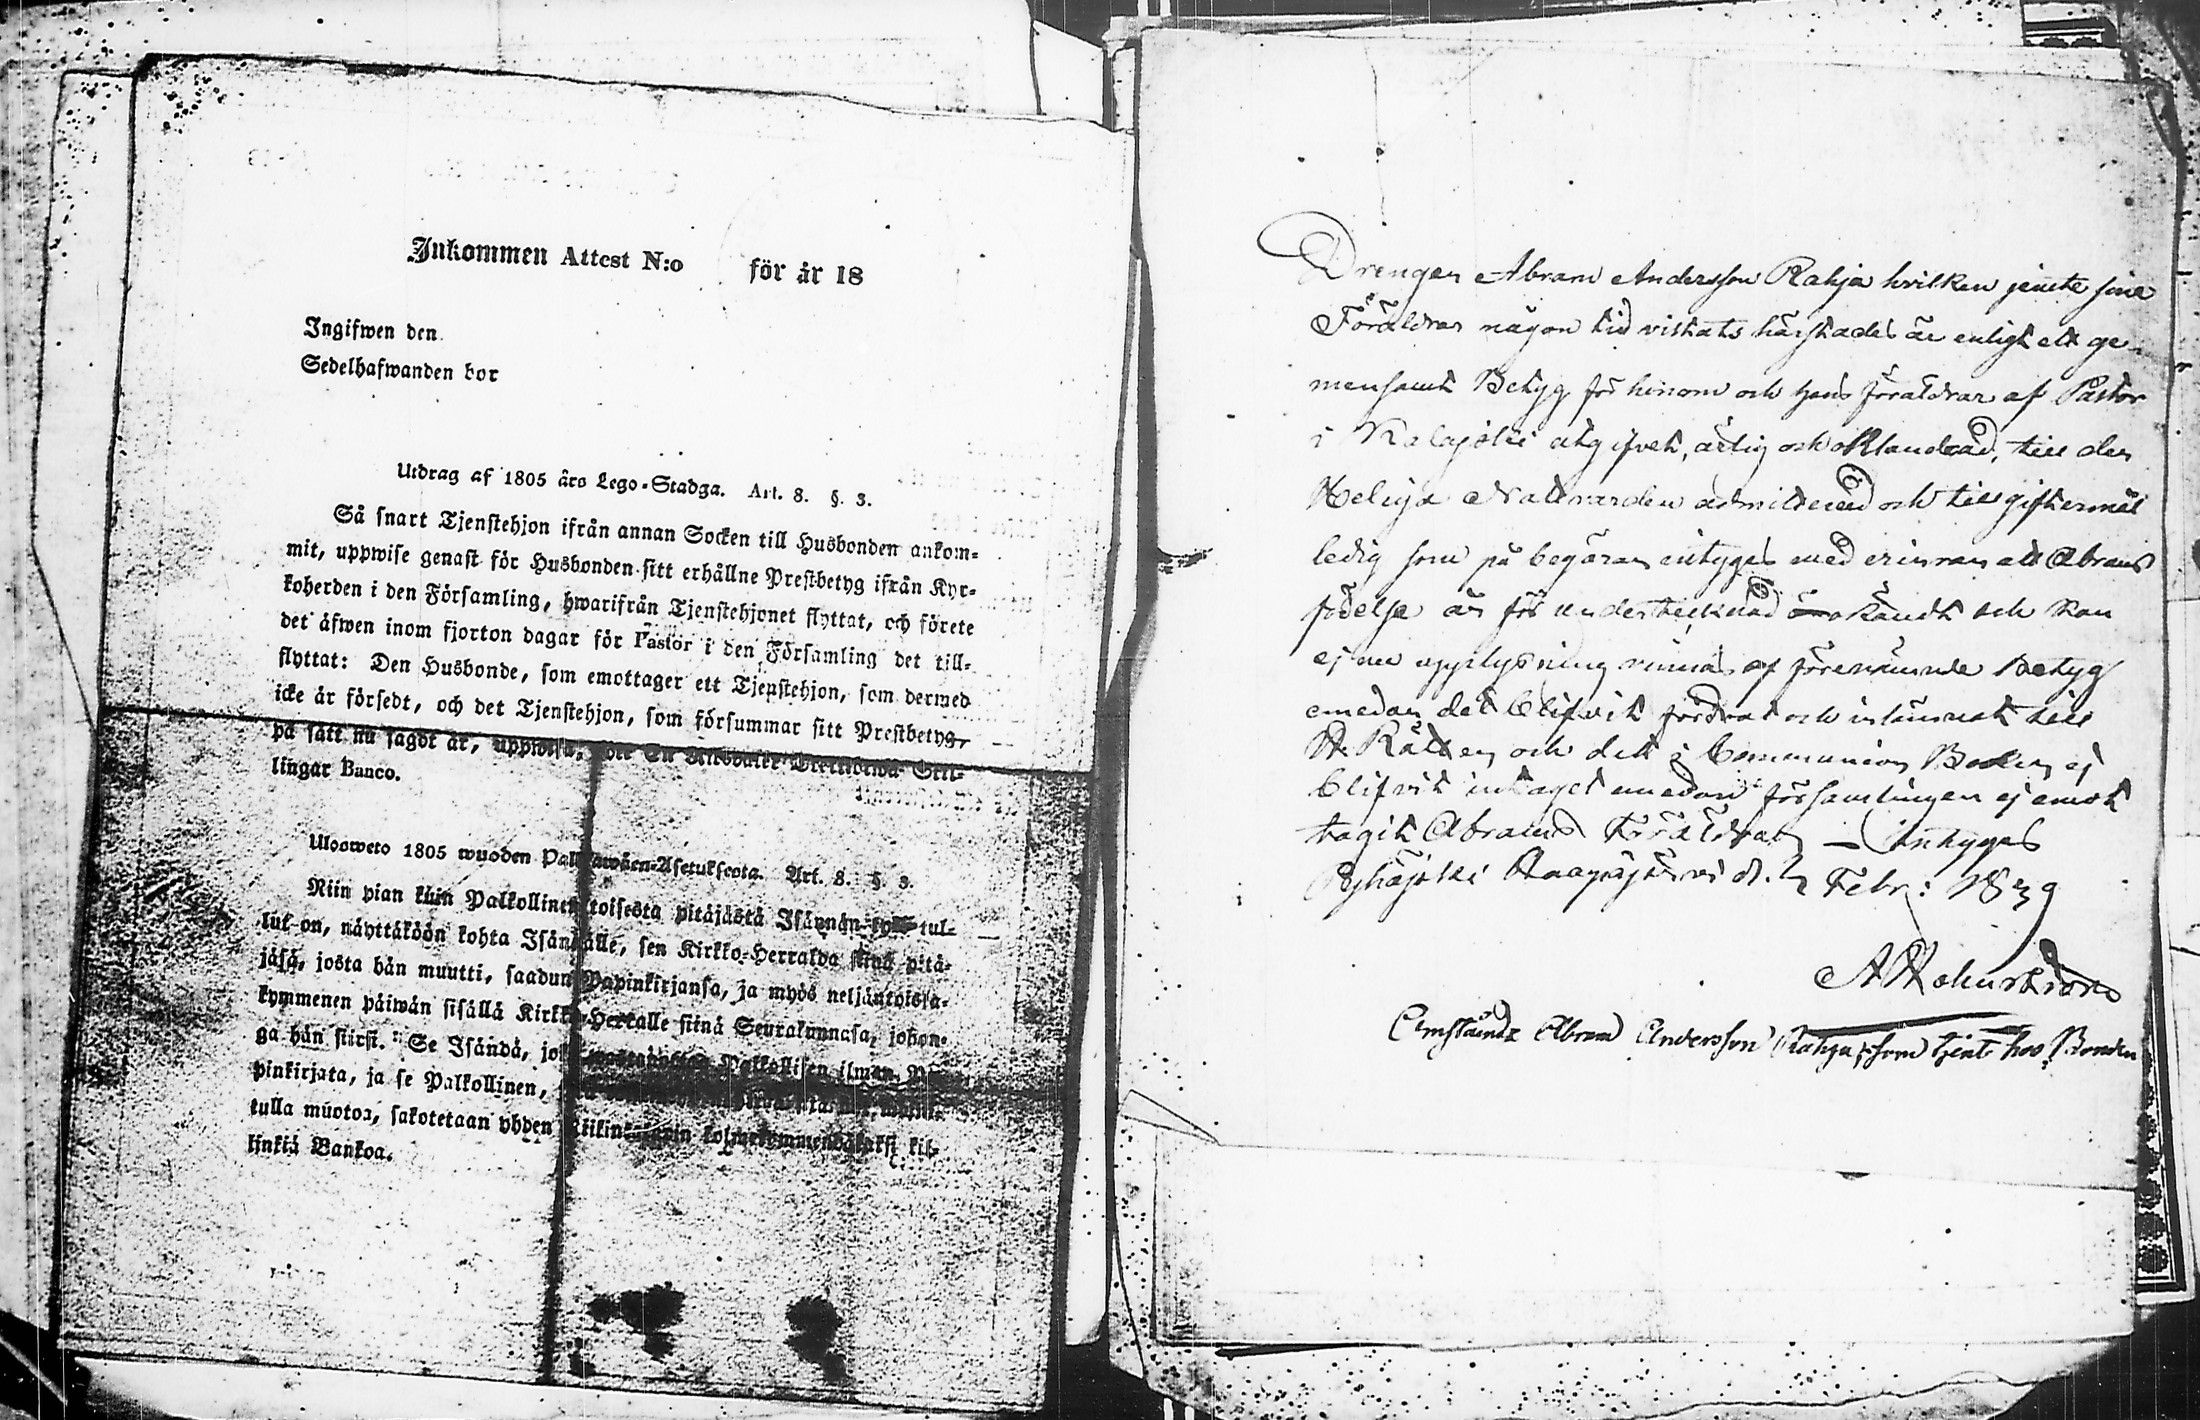 Inkommen Attest N:o för år 18
Ingifwen den
Sedelhafwanden bor
Utdrag af 1805 års Lego-Stadga. Art. 8. §. 3.
Så snart Tjenstehjon ifrån annan Socken till Husbonden ankom-
mit, uppwise genast för Husbonden sitt erhållne Prestbetyg ifrån Kyr-
koherden i den Församling, hwarifrån Tjenstehjonet flyttat, och förete
det äfwen inom fjorton dagar för Pastor i den Församling det till-
flyttat: Den Husbonde, som emottager ett Tjenstehjon, som dermed
icke är försedt, och det Tjenstehjon, som försummar sitt Prestbetyg,
på sätt nu sagdt är, uppwisa,
lingar Banco.
Ulosweto 1805 wuoden Art. 8. §. 3.
Niin pian kuin Palkollinen toisesta pitäjästä Isännän tul-
lut on, näyttäköön kohta Isännälle, sen Kirkko-Herralda siinä pitä-
jäsä, josta hän muutti, saadun Papinkirjansa, ja myös neljäntoista-
kymmenen päiwän sisällä Kirkko-Herralle siinä Seurakunnasa, johon-
ga hän siirsi. Se Isändä, Palkollisen ilman Pa-
pinkirjata, ja se Palkollinen,
tulla muotoa, sakotetaan yhden kolmekymmendäkaksi kil-
linkiä Bankoa.
Drengen Abram Andersson Rahja hvilken jemte sine
Föräldrar någon tid vistats härstädes är enligt ett ge-
mensamt Betyg för honom och hans föräldrar af Pastor
i Kalajoki utgifvet, ärlig och oklandrad, till den
Heliga Nattvarden admitterad och till giftermål
ledig som på begäran intygas med erinran att Abrams
födelse är för undertecknad okändt och kan
ej nu upplysning vinnas af förenämnde Betyg
emedan det blifvit fordrat och inlämnat till
H. Rätten och dett i Communion Boken ej
blifvit intaget emedan församlingen ej emot
tagit Abrams Föräldrar intygas
Pyhäjoki Haapajärvi d. 2 Febr: 1839
Abram Andersson Rahja som tjent hos Bonden